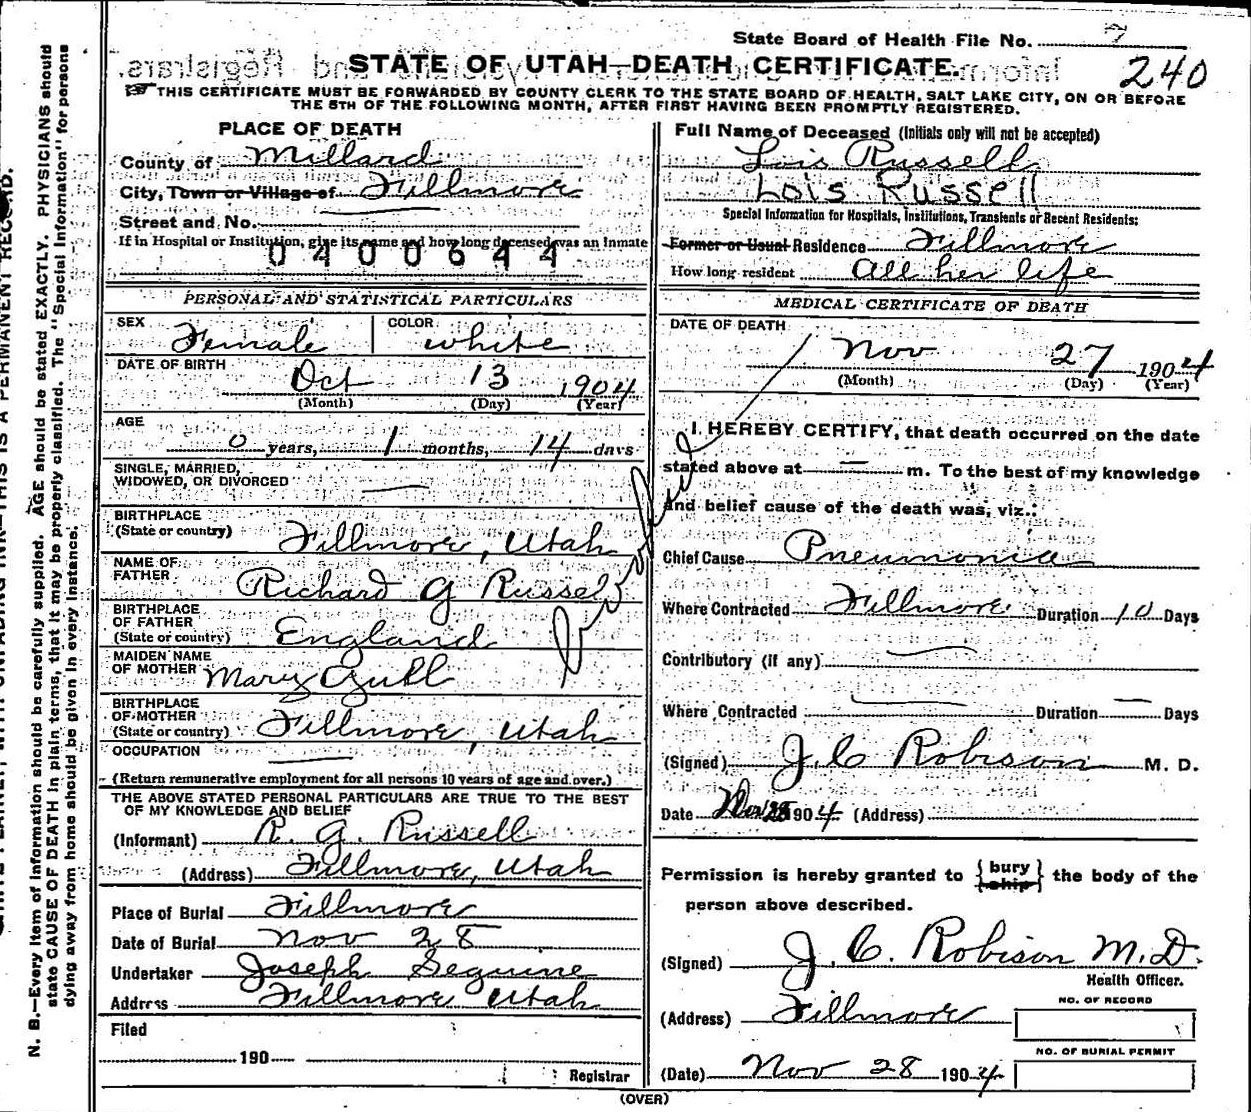 State Board of Health File No. 7
STATE OF UTAH—DEATH CERTIFICATE.
240
THIS CERTIFICATE MUST BE FORWARDED BY COUNTY CLERK TO THE STATE BOARD OF HEALTH, SALT LAKE CITY, ON OR BEFORE
THE 5TH OF THE FOLLOWING MONTH, AFTER FIRST HAVING BEEN PROMPTLY REGISTERED.
PLACE OF DEATH
County of Millard
City, Town or Village of Fillmore
Street and No.
If in Hospital or Institution, give its name and how long deceased was an inmate
0400644
PERSONAL AND STATISTICAL PARTICULARS
SEX Female COLOR white
DATE OF BIRTH
Oct 13 1904
(Month) (Day) (Year)
AGE
0 years, 1 months, 14 days
SINGLE, MARRIED,
WIDOWED, OR DIVORCED —
BIRTHPLACE
(State or country) Fillmore, Utah
NAME OF
FATHER Richard G Russell
BIRTHPLACE
OF FATHER
(State or country) England
MAIDEN NAME
OF MOTHER Mary Gull
BIRTHPLACE
OF MOTHER
(State or country) Fillmore, Utah
OCCUPATION —
(Return remunerative employment for all persons 10 years of age and over.)
THE ABOVE STATED PERSONAL PARTICULARS ARE TRUE TO THE BEST
OF MY KNOWLEDGE AND BELIEF
(Informant) R. G. Russell
(Address) Fillmore, Utah
Place of Burial Fillmore
Date of Burial Nov 28
Undertaker Joseph Seguine
Address Fillmore Utah
Filed
190
Registrar
Full Name of Deceased (Initials only will not be accepted)
Lois Russell
Lois Russell
Special Information for Hospitals, Institutions, Transients or Recent Residents:
Former or Usual Residence Fillmore
How long resident all her life
MEDICAL CERTIFICATE OF DEATH
DATE OF DEATH
Nov 27 1904
(Month) (Day) (Year)
I HEREBY CERTIFY, that death occurred on the date
stated above at — m. To the best of my knowledge
and belief cause of the death was, viz.:
Chief Cause Pneumonia
Where Contracted Fillmore Duration 10 Days
Contributory (if any) —
Where Contracted — Duration — Days
(Signed) J. C Robison M. D.
Date Nov 1904 (Address)
Permission is hereby granted to {bury ship} the body of the
person above described.
(Signed) J. C. Robison M.D.
Health Officer.
(Address) Fillmore
NO. OF RECORD
NO. OF BURIAL PERMIT
(Date) Nov 28 1904
(OVER)
N. B.—Every item of information should be carefully supplied. AGE should be stated EXACTLY. PHYSICIANS should
state CAUSE OF DEATH in plain terms, that it may be properly classified. The "Special Information" for persons
dying away from home should be given in every instance.